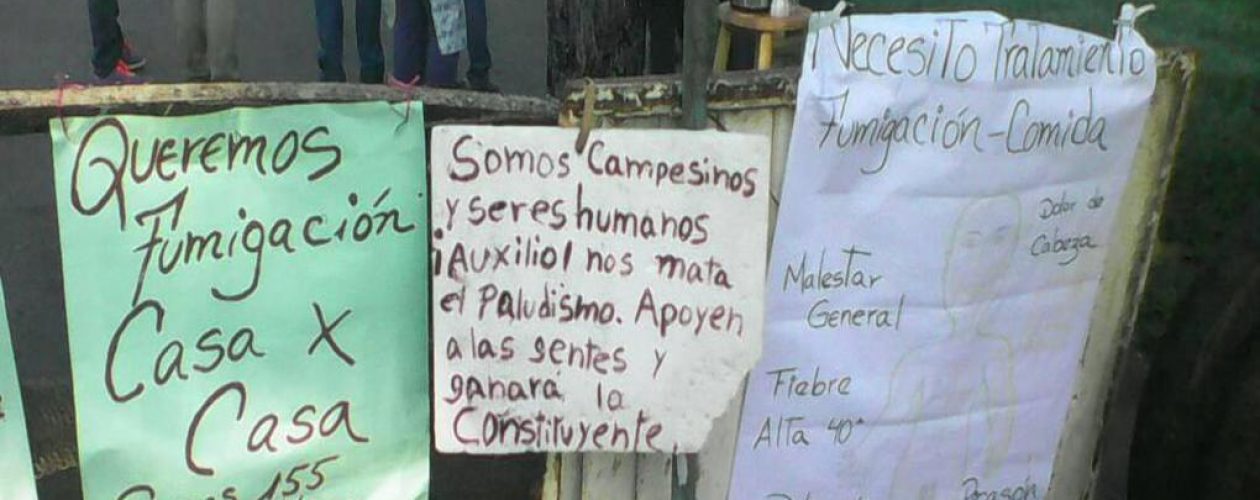 Queremos
Fumigación
Casa X
Casa
155
Somos Campesinos
y seres humanos
¡Auxilio! nos mata
el Paludismo. Apoyen
a las gentes y
ganará la
Constituyente,
Necesito Tratamiento
Fumigación-Comida
Dolor de
Cabeza
Malestar
General
Fiebre
Alta 40°